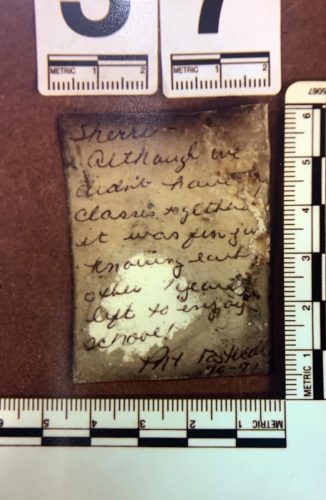 5 7
METRIC 1 2 METRIC 1 2
Sherri
Although we
didn't have
classes together
it was fun
knowing each
other 1 year
left to enjoy
school!
Pat
70-71
6
5
4
3
2
METRIC 1
METRIC 1 2 3 4 5 6